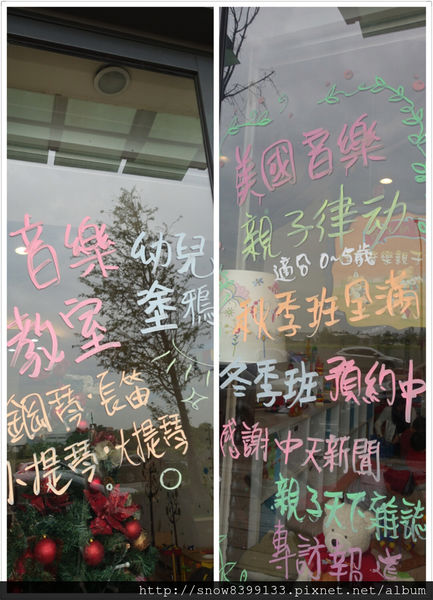 音樂
教室
幼兒
塗鴉
鋼琴·長笛
小提琴·大提琴
美國音樂
親子律动
適合0~5歲
秋季班呈滿
冬季班預約中
感謝中天新聞
親子天下雜誌
專訪報導
http://snow8399133.pixnet.net/album